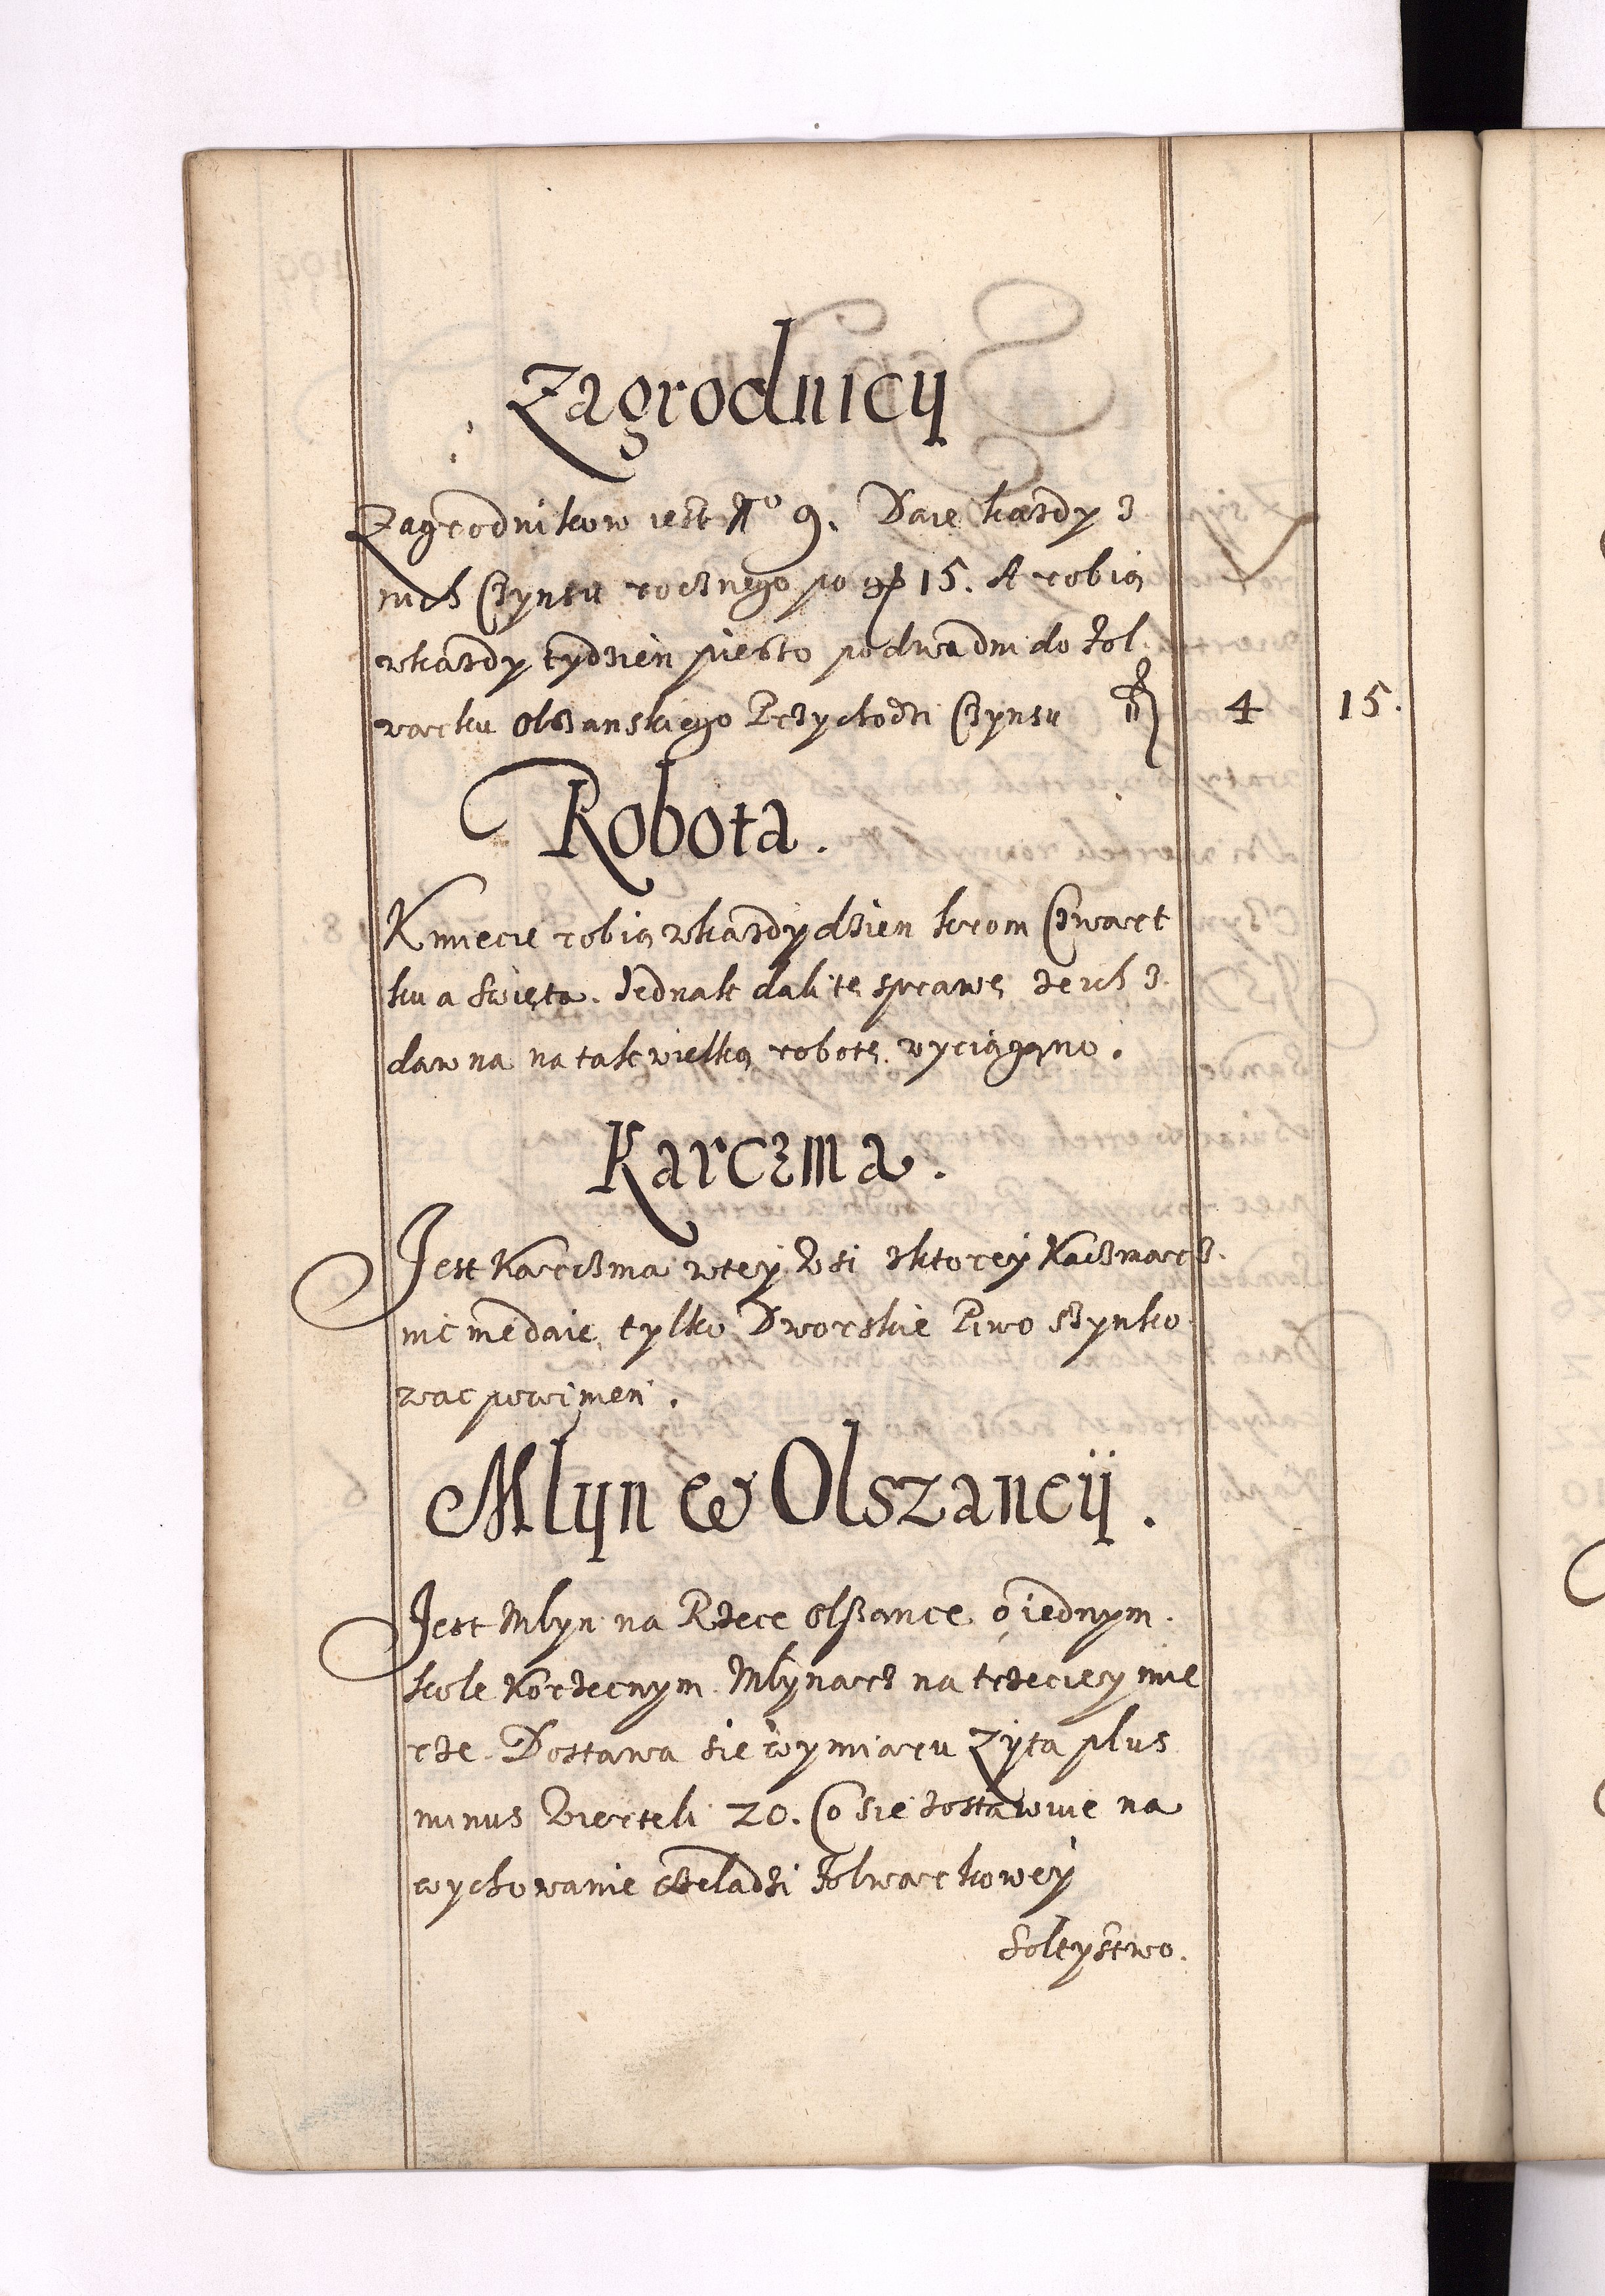 Zagrodnicy
Zagrodnikow iest No 9. Daie każdy z
nich Czynsu rocznego po gr 15. A robią
wkażdy tydzień pieszo podwa dni do fol
warku Olszanskiego Przychodzi Czynsu fl 4 15.
Robota.
Kmiecie robią wkażdy dzien krom Czwart
ku a święta. Jednak dali tę sprawę że ich z
dawna na tak wielką robotę wyciągano.
Karczma.
Jest Karczma wtey Wsi zktorey Kaczmarz
nic niedaie, tylko Dworskie Piwo szynko
wac powinien.
Mlyn w Olszancÿ.
Jest Mlyn na Rzece Olszance, o iednym
kole Korzecznym. Mlynarz na trzeciey mie
rze. Dostawa sie wymiaru Zyta plus
minus Wierteli 20. Co sie zostawuie na
wychowanie czeladzi folwarkowey
Soltystwo.